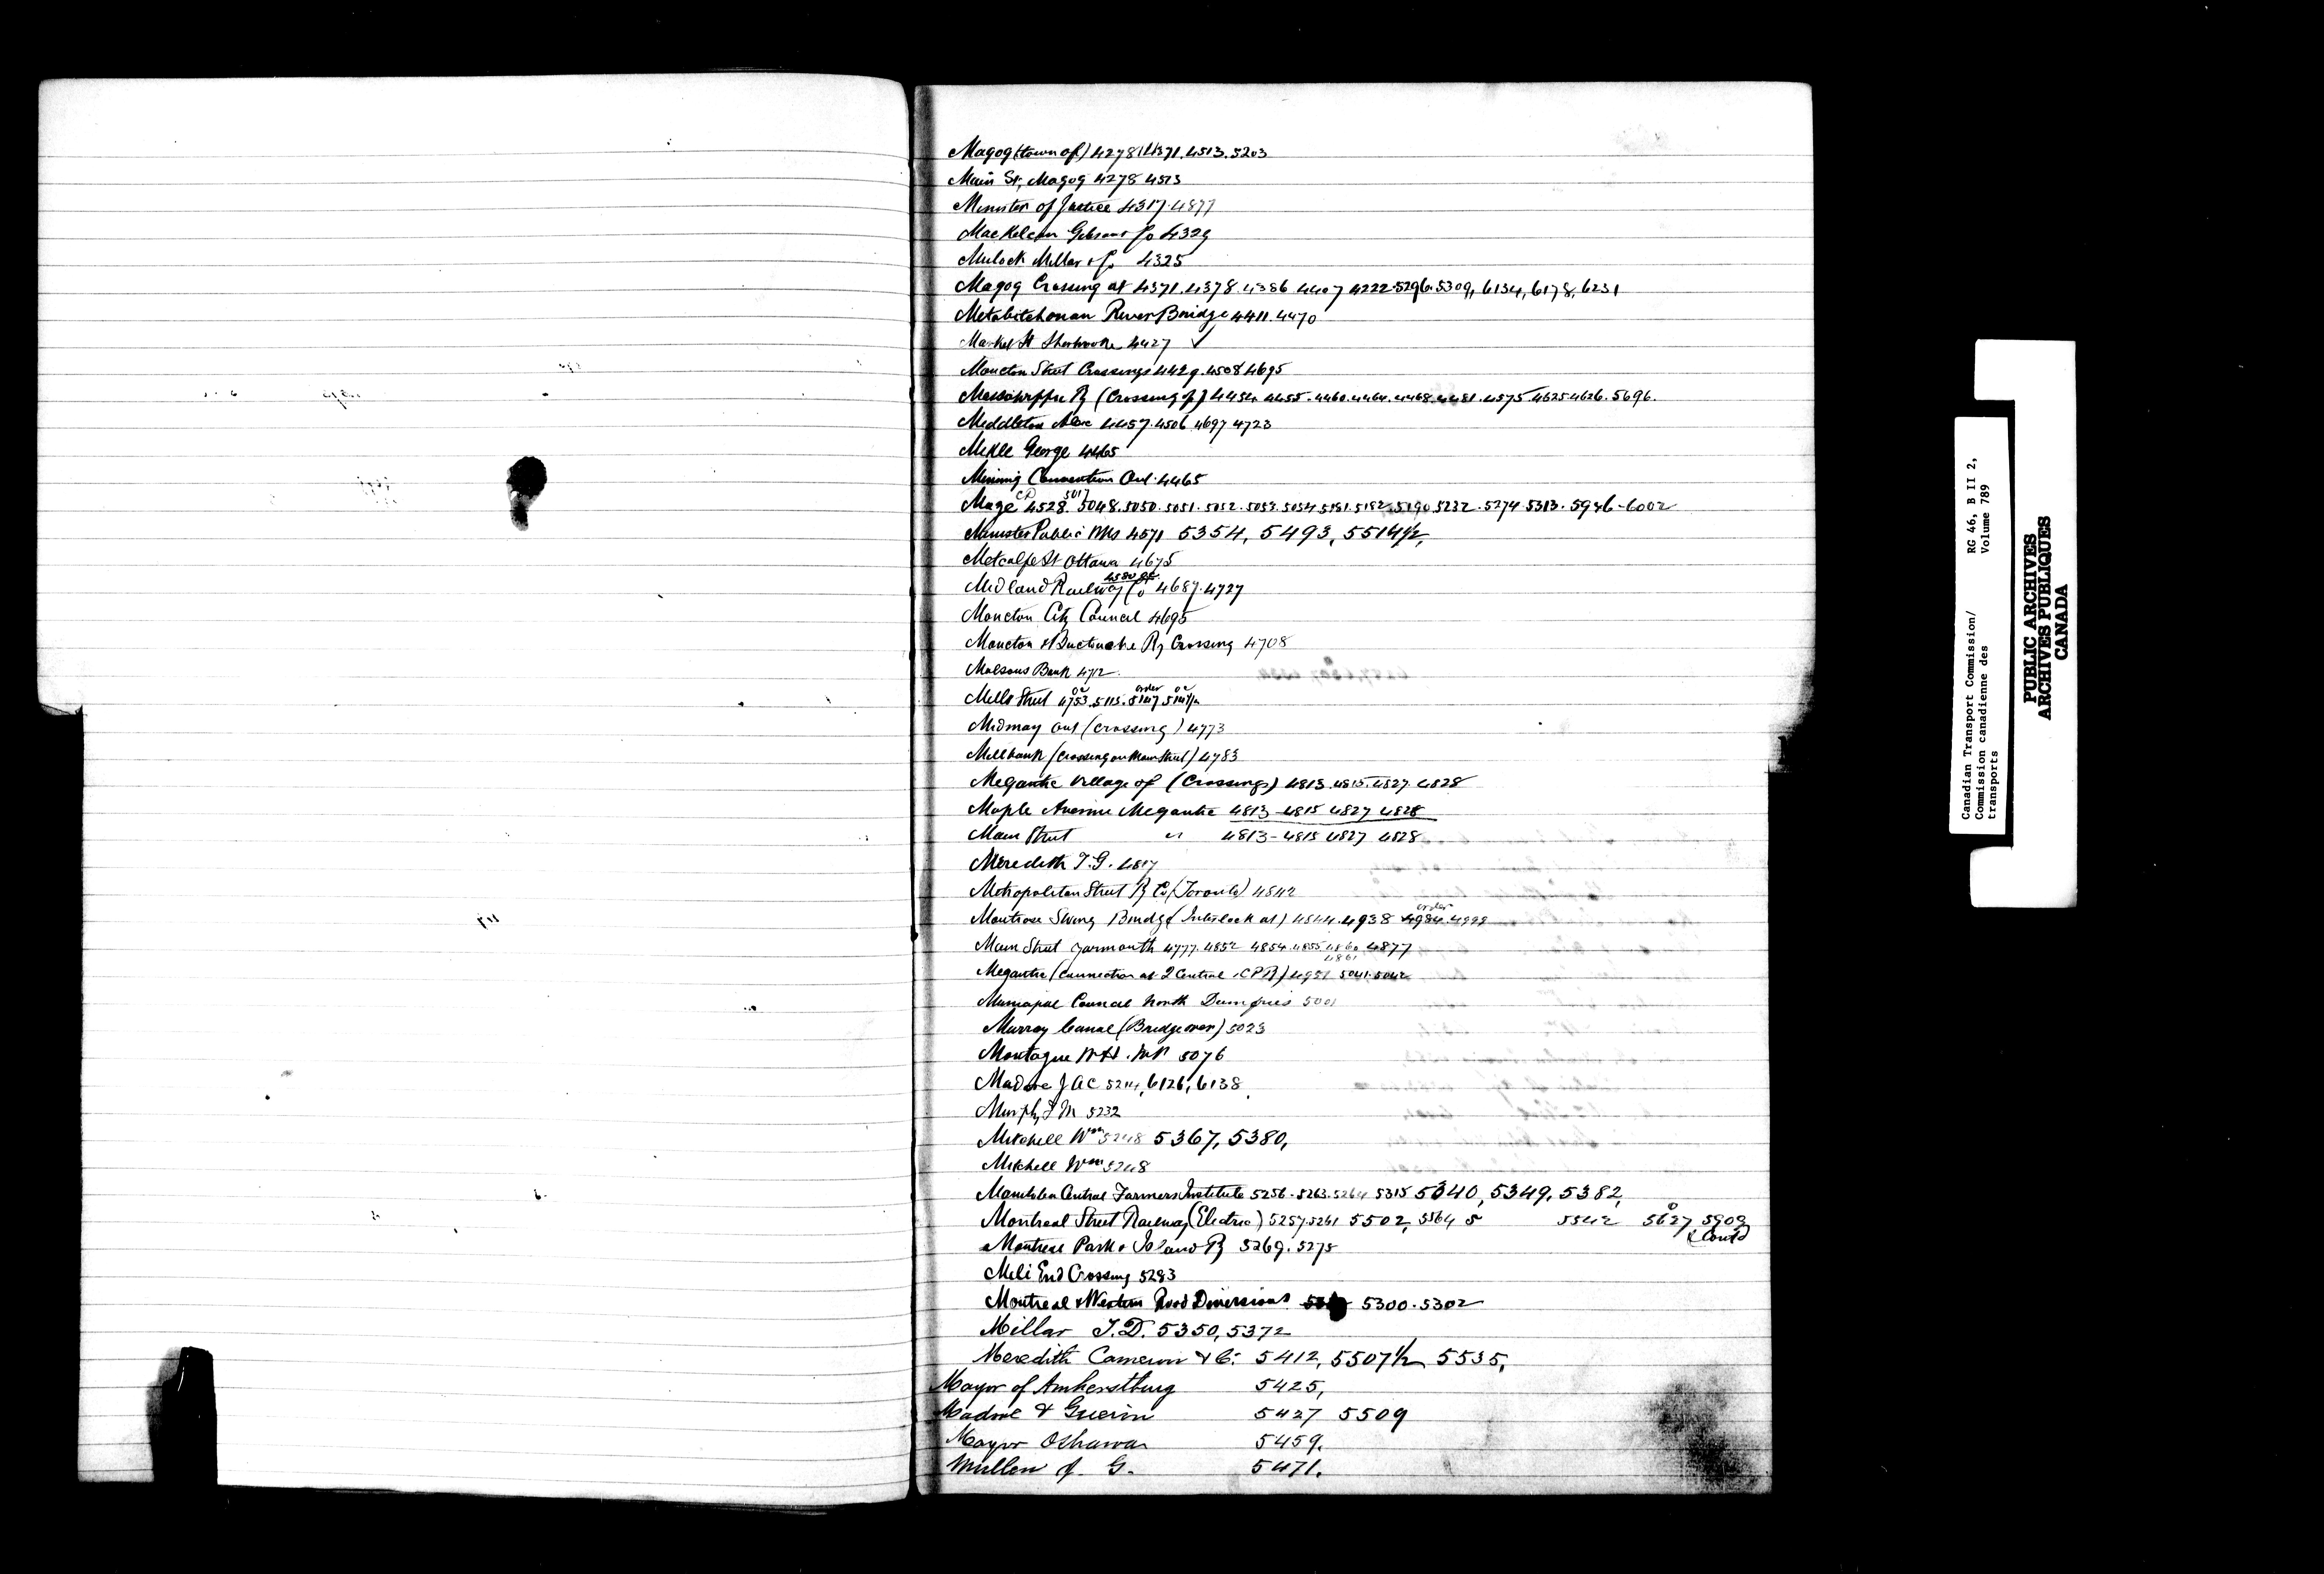 Magog (town of) 4278 4371. 4513. 5203
Main St, Magog 4278 4513
Minister of Justice 4317. 4877
MacKelcan Gibson & Co 4329
Mulock Millar & Co 4325
Magog Crossing at 4371. 4378. 4386. 4407 4222. 5296. 5309, 6134, 6178, 6231
Metabetchouan River Bridge 4411. 4470
Market St Sherbrooke 4427 ✓
Moncton Street Crossings 4429. 4508 4695
Massawippi Ry (Crossing of) 4454 4455. 4460. 4464. 4468. 4481. 4575. 4625 4626. 5696.
Middleton 4457. 4506 4697 4723
Mickle George 4465
Mining Convention Ont. 4465
Mage CP 4528. 5017 5048. 5050. 5051. 5052. 5053. 5054 5181. 5182. 5190 5232. 5274. 5313. 5946-6002
Minister Public Wks 4571 5354, 5493, 5514½,
Metcalfe St Ottawa 4675
Midland Railway Co 4687. 4727
Moncton City Council 4695
Moncton & Buctouche Ry Crossing 4708
Molsons Bank 4712.
Mills Street 4753. 5113. order 5147
Midmay Ont (Crossing) 4773
Millbank (Crossing on Main Street) 4783
Megantic Village of (Crossings) 4813. 4815. 4827. 4828
Maple Avenue Megantic 4813-4815 4827 4828
Main Street " 4813-4815 4827 4828
Meredith T.G. 4817
Metropolitan Street Ry Co, (Toronto) 4842
Montrose Swing Bridge (Interlock at) 4844. 4938 order 4984. 4999
Main Street Yarmouth 4777. 4852 4854. 4855 4860 4861 4877
Megantic (Connection at 2 Central & CPR) 4951 5041. 5042
Municipal Council North Dumfries 5001
Murray Canal (Bridge over) 5023
Montague W H. MP 5076
Madore J A C 5214, 6126, 6138
Murphy J M 5232
Mitchell Wm 5248 5367, 5380,
Mitchell Wm 5248
Manitoba Central Farmers Institute 5256. 5263. 5264 5315 5340, 5349, 5382,
Montreal Street Railway (Electric) 5257. 5261 5502, 5564 5 5542 5627, 5909
& Contd
Montreal Park & Island Ry 5269. 5275
Mile End Crossing 5283
Montreal & Western Road Diversions 5300. 5302
Millar J. D. 5350, 5372
Meredith Cameron & Co. 5412, 5507½ 5535,
Mayor of Amherstburg 5425,
Madore & Guerin 5427 5509
Mayor Oshawa 5459.
Mullen J. G. 5471.
Canadian Transport Commission/ RG 46, B II 2,
Commission canadienne des Volume 789
transports
PUBLIC ARCHIVES
ARCHIVES PUBLIQUES
CANADA